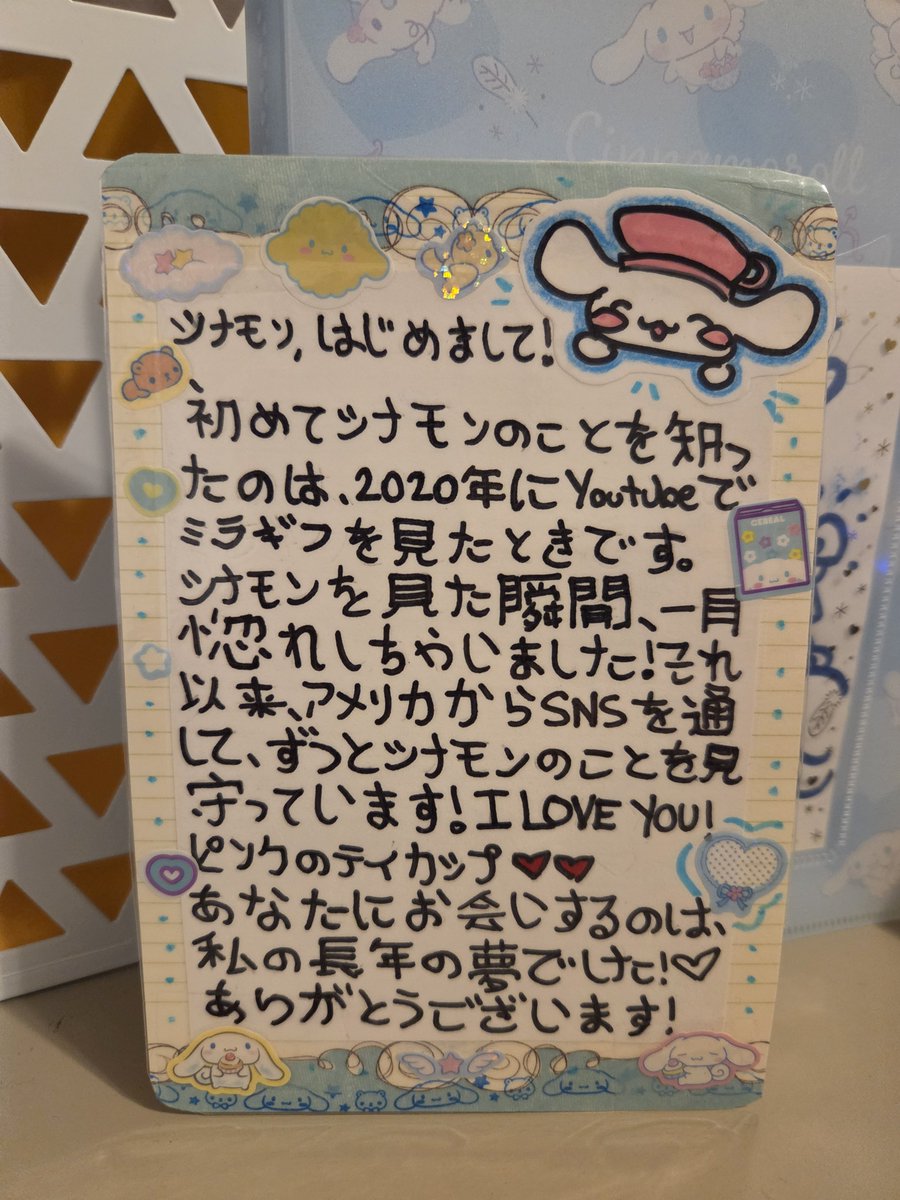 Cinnamoroll
ツナモン, はじめまして!
初めてツナモンのことを知っ
たのは、2020年にYoutubeで
ミラギフを見たときです。
ツナモンを見た瞬間、一目
惚れしちゃいました!それ
以来、アメリカからSNSを通
して、ずっとツナモンのことを見
守っています! I LOVE YOU!
ピンクのティカップ
あなたにお会いするのは、
私の長年の夢でした!♡
ありがとうございます!
CEREAL